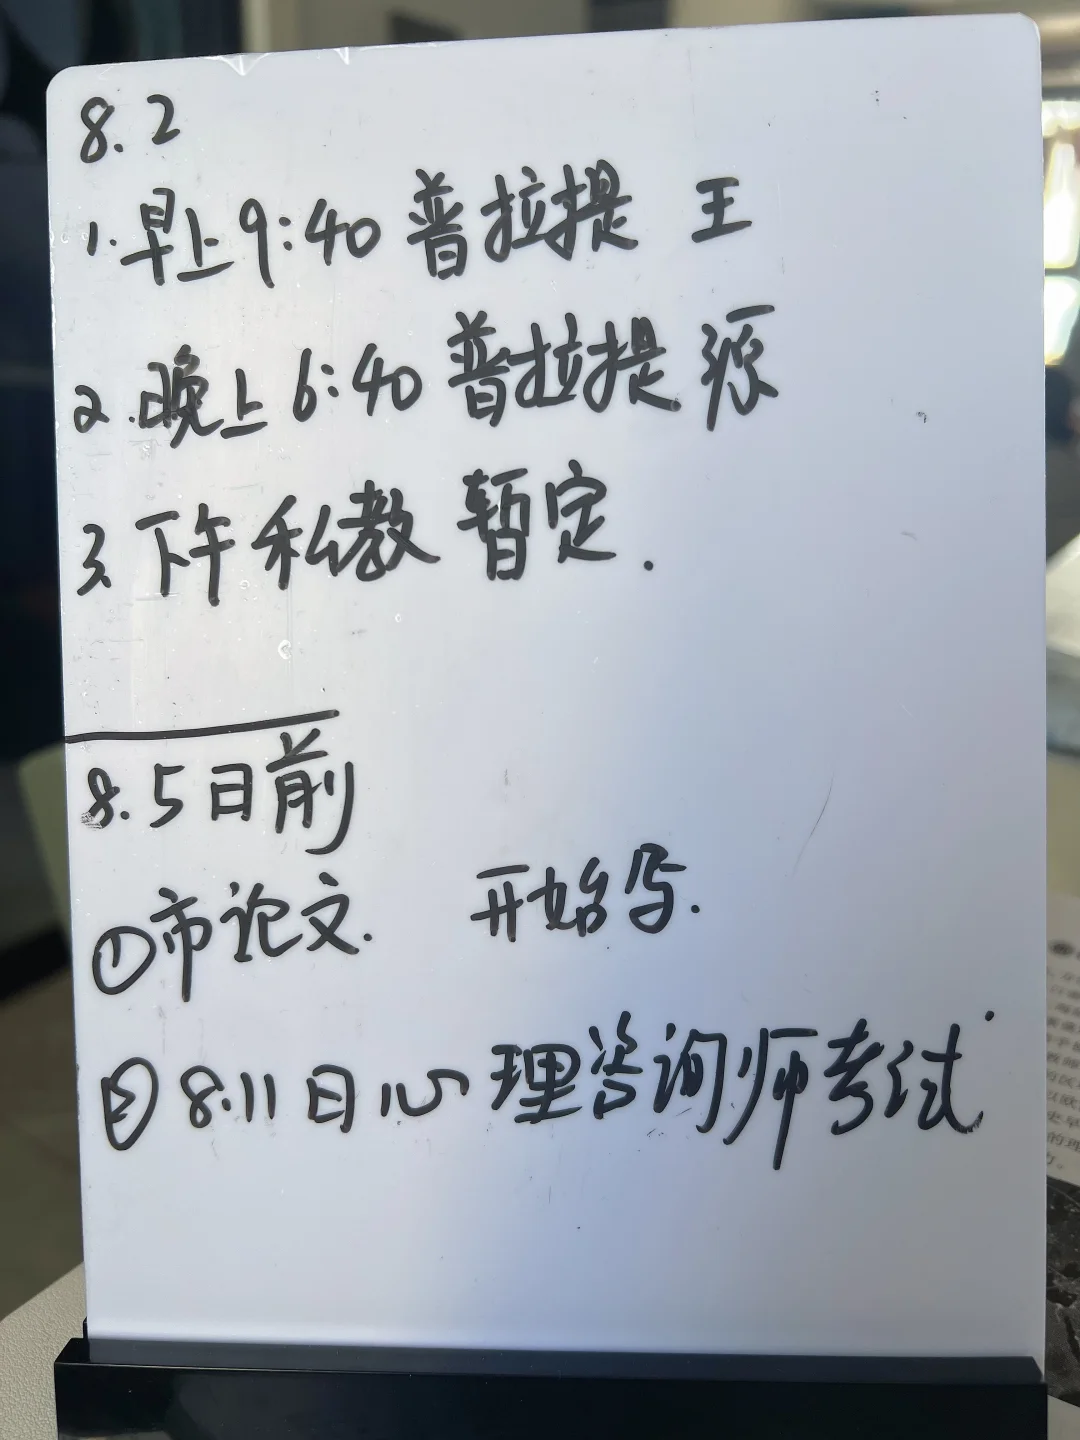 8.2
1.早上9:40 普拉提 王
2.晚上6:40 普拉提 源
3.下午 私教 暂定.
8.5日前
①市论文. 开始写.
② 8.11日心理咨询师考试